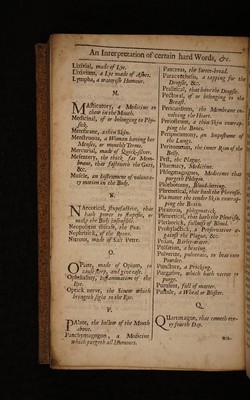 An Interpretation of certain hard Words, &c.
Lixivial, made of Lye.
Lixivium, a Lye made of Ashes.
Lympha, a waterish Humour.
M.
MAsticatory, a Medicine to
chew in the Mouth.
Medicinal, of or belonging to Phy-
sick.
Membrane, a thin Skin.
Menstruous, a Woman having her
Menses, or monthly Terms.
Mercurial, made of Quick-silver.
Mesentery, the thick fat Mem-
brane, that fastneth the Guts,
&c.
Muscle, an Instrument of volunta-
ry motion in the Body.
N.
NArcotical, stupefactive, that
hath power to stupefie, or
make the Body insensible.
Nephritick, of the Reins.
Nitrous, made of Salt Petre.
O.
OPiate, made of Opium, to
cause sleep, and give ease.
Ophthalmy, Inflammation of the
Eye.
Optick nerve, the Sinew which
bringeth sight to the Eye.
P.
PAlate, the hollow of the Mouth
above.
Panchymagogon, a Medicine
which purgeth all Humours.
Pancreas, the Sweet-bread.
Paracenthesis, a tapping for the
Dropsie, &c.
Pectoral, of or belonging to the
Breast.
Pericardium, the Membrane en-
volving the Heart.
Periostium, a thin Skin enwrap-
ping the Bones.
Peripneumony, an Impostume of
the Lungs.
Peritonæum, the inner Rim of the
Belly.
Pest, the Plague.
Pharmacy, Medicine.
Phlegmagogues, Medicines that
purgeth Phlegm.
Phlebotomy, Blood-letting.
Pleuretical, that hath the Pleurisie.
Pia mater the tender Skin enwrap-
ping the Brain.
Plethorick, abounding of Blood.
Prophylactick, a Preservative a-
gainst the Plague, &c.
Ptisan, Barley-water.
Pulsation, a beating.
Pulverise, pulverate, to beat into
Powder.
Puncture, a Pricking.
Purgative, which hath vertue to
purge.
Purulent, full of matter.
Pustule, a Wheal or Blister.
Q.
QUartanague, that cometh eve-
ry fourth Day.